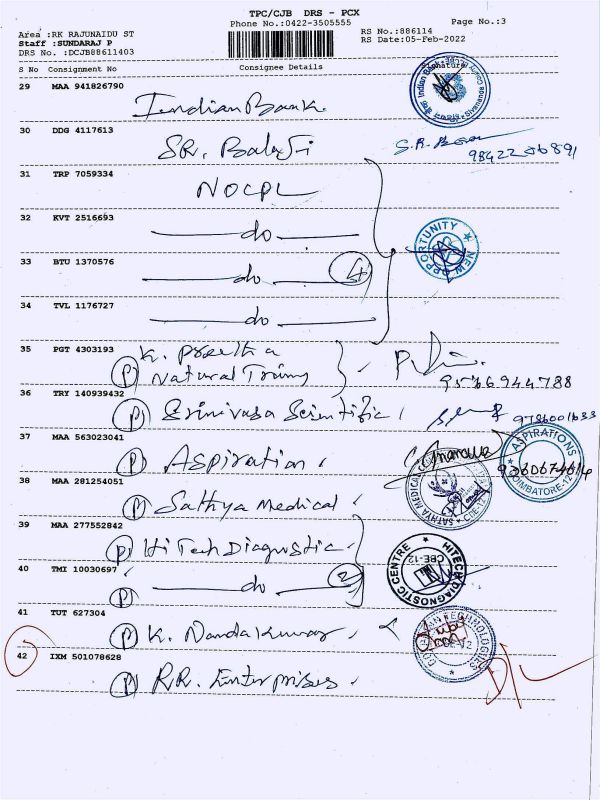 TPC/CJB DRS - PCX
Phone No.:0422-3505555
Page No.:3
Area :RK RAJUNAIDU ST
RS No.:886114
Staff :SUNDARAJ P
RS Date:05-Feb-2022
DRS No. :DCJB88611403
S No Consignment No Consignee Details Signature
29 MAA 941826790
Indian Bank
30 DDG 4117613
SR. Balaji
31 TRP 7059334
NOCPL
32 KVT 2516693
do
NEW OPPORTUNITY
33 BTU 1370576
do 4
34 TVL 1176727
do
35 PGT 4303193
K. Preetha
(P) Natural Trims
9566944788
36 TRY 140939432
(P) Srinivasa Scientific
37 MAA 563023041
(P) Aspiration
ASPIRATIONS
COIMBATORE-12
38 MAA 281254051
(P) Sathya Medical
SATHYA MEDICAL
CBE-12
39 MAA 277552842
(P) HiTech Diagnostic
HITECH DIAGNOSTIC CENTRE
CBE-12
40 TMI 10030697
(P) do 2
41 TUT 627304
(P) K. Nandakumar
TECHNOLOGIES
42 IXM 501078628
(P) RR. Enterprises